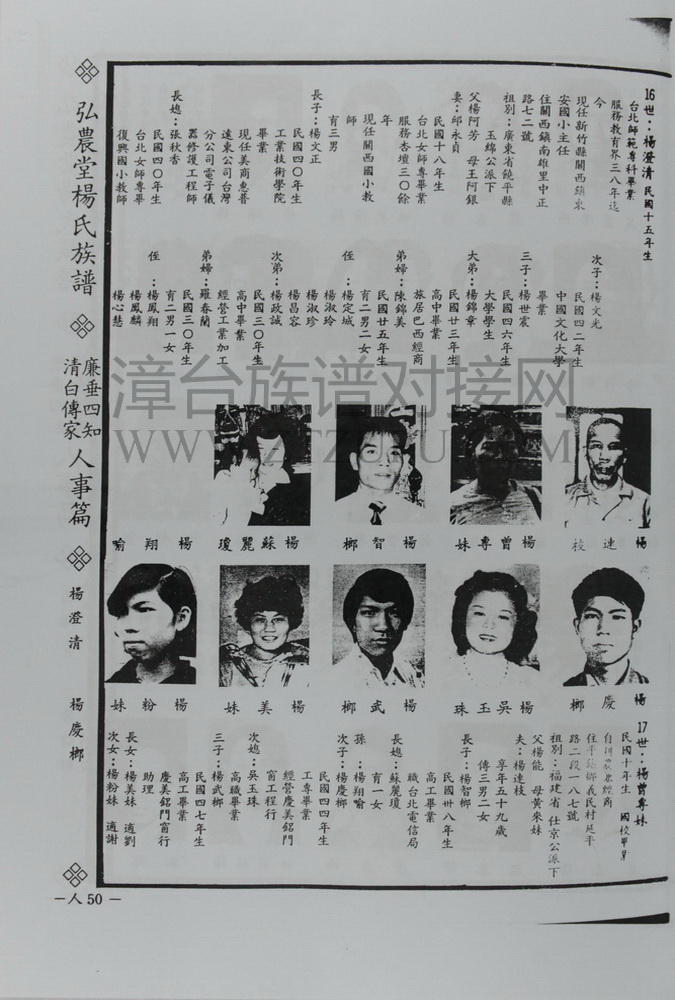 16世：楊澄清 民國十五年生
台北師範專科畢業
服務教育界三八年迄
今
現任新竹縣關西鎮東
安國小主任
住關西鎮南雄里中正
路七二號
祖別：廣東省饒平縣
玉綿公派下
父楊阿芳 母王阿銀
妻：邱永貞
民國十八年生
台北女師專畢業
服務杏壇三〇餘
年
現任關西國小教
師
育三男
長子：楊文正
民國四〇年生
工業技術學院
畢業
現任美商惠普
遠東公司台灣
分公司電子儀
器修護工程師
長媳：張秋香
民國四〇年生
台北女師專畢
復興國小教師
次子：楊文光
民國四二年生
中國文化大學
畢業
三子：楊世震
民國四六年生
大學學生
大弟：楊錦章
民國廿三年生
高中畢業
旅居巴西經商
弟婦：陳錦美
民國廿五年生
育二男二女
侄：楊定城
楊淑玲
楊淑珍
楊昌容
次弟：楊政誠
民國三〇年生
高中畢業
經營工業加工
弟婦：羅春蘭
民國三〇年生
育二男一女
侄：楊鳳翔
楊鳳麟
楊心慧
漳台族谱对接网
楊連枝
楊曾專妹
楊智榔
楊蘇麗瓊
楊翔喻
楊慶榔
楊吳玉珠
楊武榔
楊美妹
楊粉妹
17世：楊曾專妹
民國十年生 國校畢業
自訓農兼經商
住平鎮鄉義民村延平
路二段一八七號
祖別：福建省 仕京公派下
父楊能 母黃來妹
夫：楊連枝
享年五十九歲
傳三男二女
長子：楊智榔
民國卅八年生
高工畢業
職台北電信局
長媳：蘇麗瓊
育一女
孫：楊翔喻
次子：楊慶榔
民國四四年生
工專畢業
經營慶美鋁門
窗工程行
次媳：吳玉珠
高職畢業
三子：楊武榔
民國四七年生
高工畢業
慶美鋁門窗行
助理
長女：楊美妹 適劉
次女：楊粉妹 適謝
弘農堂楊氏族譜
廉垂四知
清白傳家
人事篇
楊澄清
楊慶榔
－人50－